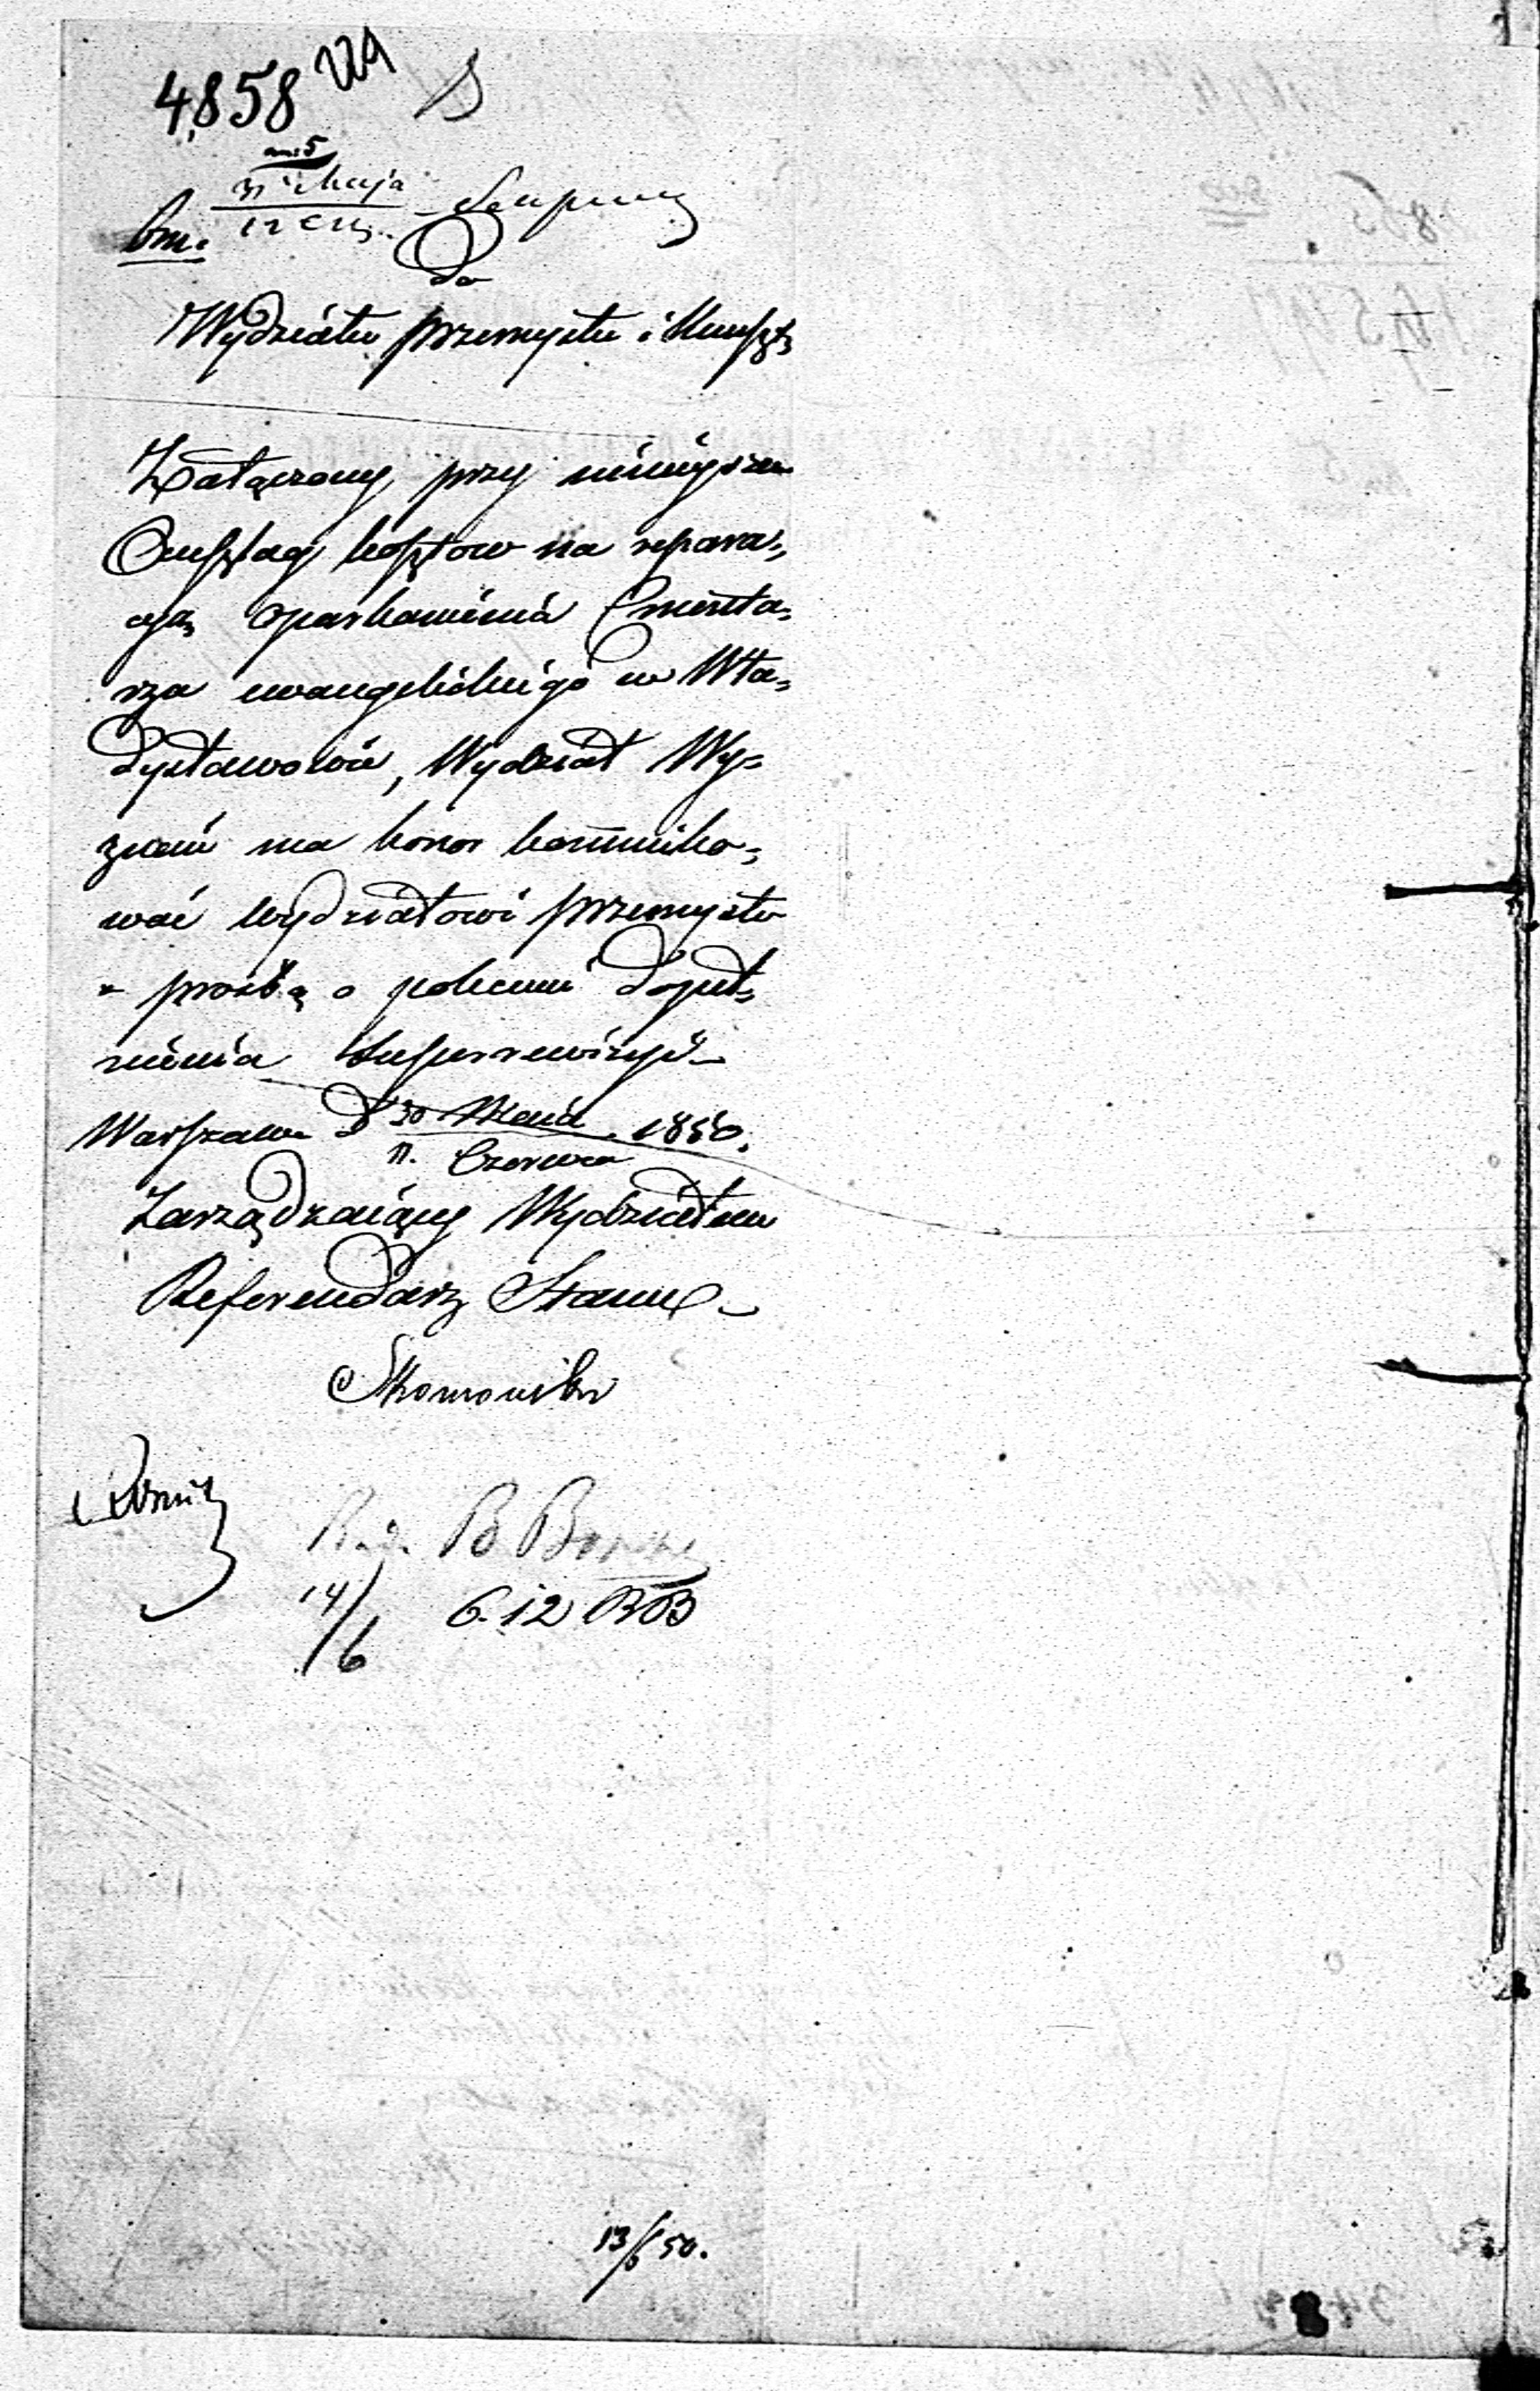 4858 229
31 Maja
12 Cz.
Do
Wydziału Przemysłu i Kunsztów
Załączony przy niniejszem
Anszlag kosztow na repara,,
cyą oparkanienia Cmenta,,
rza ewangelickiego w Wła,,
dysławowie, Wydział Wy=
znań ma honor kom̄uniko,,
wać Wydziałowi Przemysłu
z prosbą o polecenie dopeł,,
nienia superrewizyi
Warszawa d 30 Maia 1850.
11. Czerwca
Zarządzaiący Wydziałem
Referendarz Stanu
14/6 6.12 BB
13/6 50.